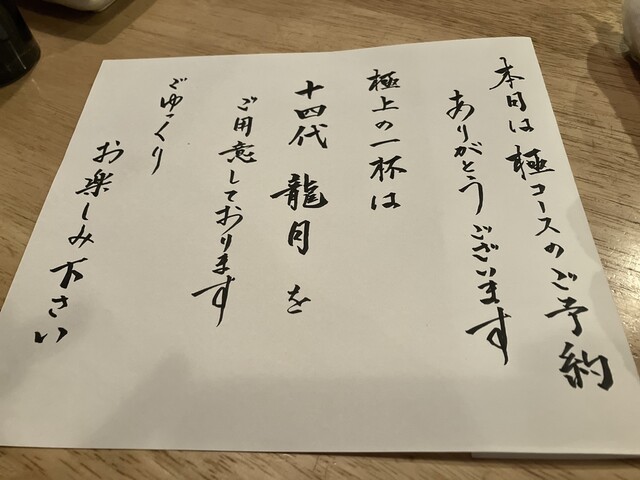 本日は極コースのご予約
ありがとうございます
極上の一杯は
十四代 龍月 を
ご用意しております
ごゆっくり
お楽しみ下さい